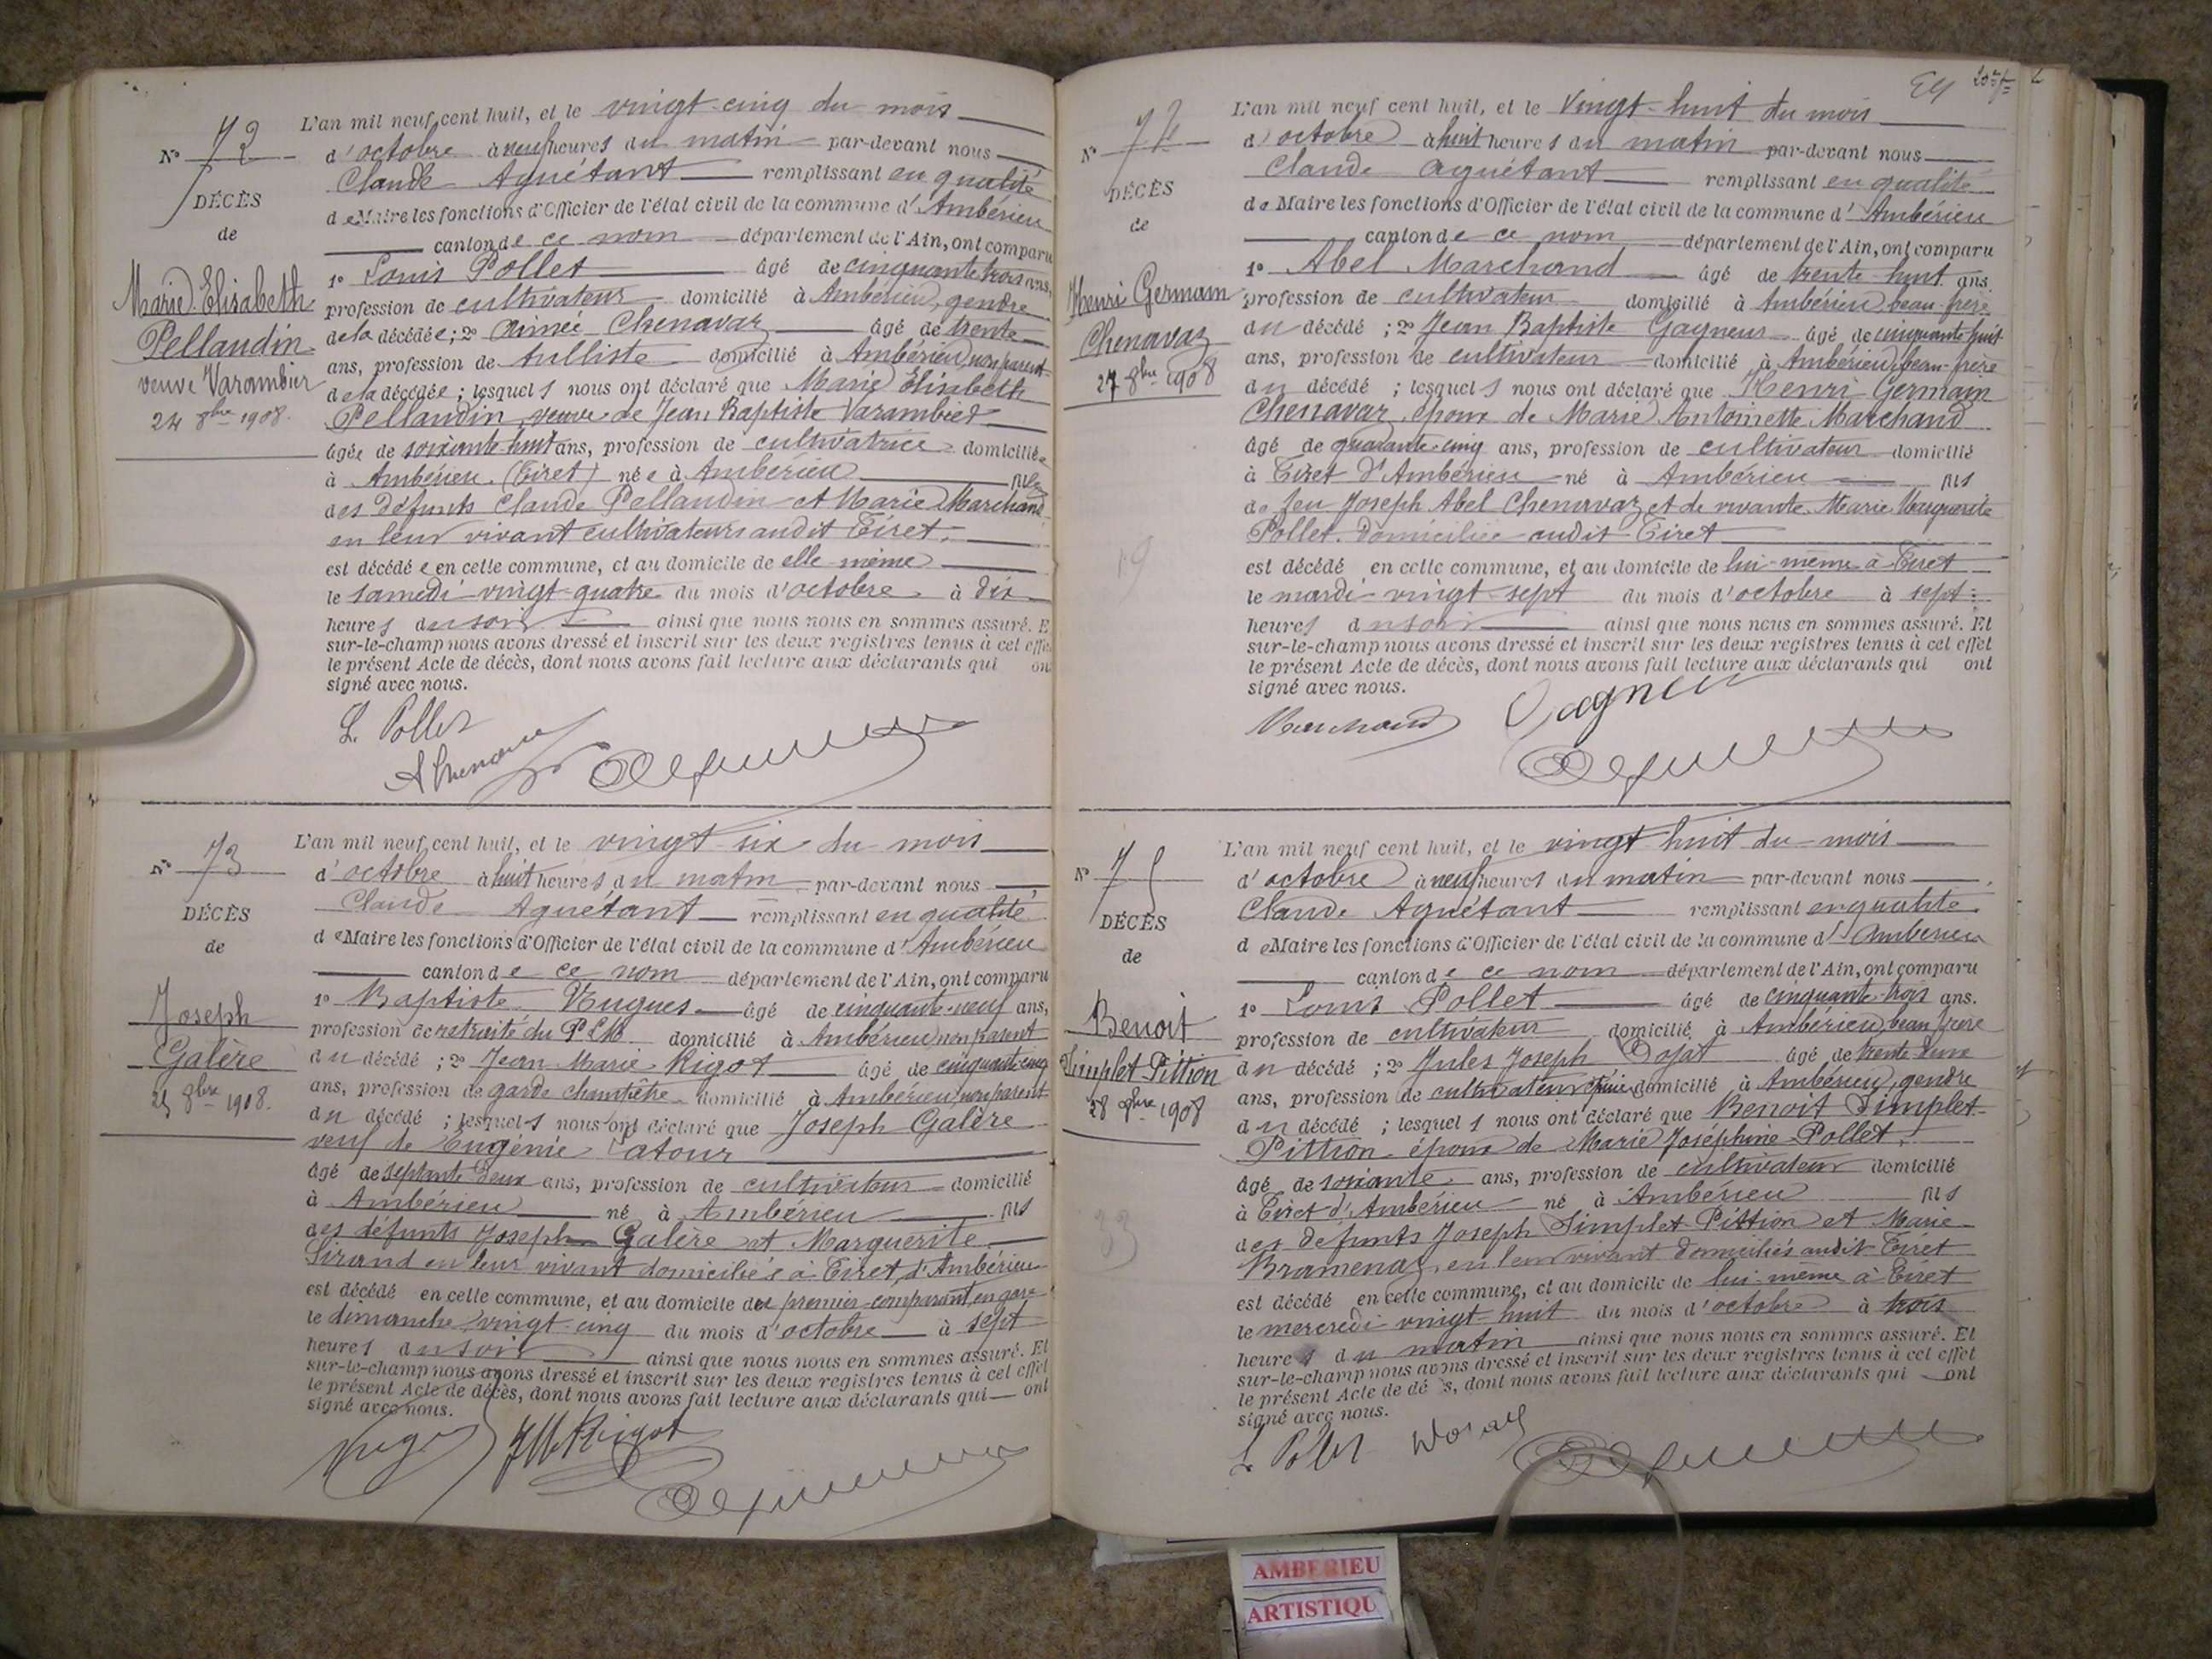 Nº 72
DÉCÈS
de
Marie Elisabeth
Pellaudin
veuve Varambier
24 8bre 1908.
L'an mil neuf cent huit, et le vingt-cinq du mois
d'octobre à neuf heures du matin par-devant nous
Claude Aguétant remplissant en qualité
de Maire les fonctions d'Officier de l'état civil de la commune d'Ambérieu
canton de ce nom département de l'Ain, ont comparu
1º Louis Pollet âgé de cinquante trois ans,
profession de cultivateur domicilié à Ambérieu, gendre
de la décédée; 2º Aimée Chenavaz âgé de trente
ans, profession de tulliste domicilié à Ambérieu, non parent
de la décédée; lesquels nous ont déclaré que Marie Elisabeth
Pellaudin, veuve de Jean Baptiste Varambier
âgée de soixante-huit ans, profession de cultivatrice domiciliée
à Ambérieu (Tiret) née à Ambérieu fille
des défunts Claude Pellaudin et Marie Marchand
en leur vivant cultivateurs audit Tiret,
est décédée en cette commune, et au domicile de elle même
le samedi vingt-quatre du mois d'octobre à dix
heures du soir ainsi que nous nous en sommes assuré. E
sur-le-champ nous avons dressé et inscrit sur les deux registres tenus à cet effe
le présent Acte de décès, dont nous avons fait lecture aux déclarants qui on
signé avec nous.
L. Pollet
A Chenavaz
Nº 73
DÉCÈS
de
Joseph
Galère
25 8bre 1908.
L'an mil neuf cent huit, et le vingt six du mois
d'octobre à huit heures du matin par-devant nous
Claude Aguétant remplissant en qualité
de Maire les fonctions d'Officier de l'état civil de la commune d'Ambérieu
canton de ce nom département de l'Ain, ont comparu
1º Baptiste Hugues âgé de cinquante-neuf ans,
profession de retraité du P.L.M. domicilié à Ambérieu non parent
du décédé; 2º Jean Marie Rigot âgé de cinquante cinq
ans, profession de garde champêtre domicilié à Ambérieu, non parent
du décédé; lesquels nous ont déclaré que Joseph Galère
veuf de Eugénie Latour
âgé de septante deux ans, profession de cultivateur domicilié
à Ambérieu né à Ambérieu fils
des défunts Joseph Galère et Marguerite
Sirand en leur vivant domiciliés à Tiret, d'Ambérieu
est décédé en cette commune, et au domicile du premier comparant, en gare
le dimanche vingt-cinq du mois d'octobre à sept
heures du soir ainsi que nous nous en sommes assuré. Et
sur-le-champ nous avons dressé et inscrit sur les deux registres tenus à cet effet
le présent Acte de décès, dont nous avons fait lecture aux déclarants qui ont
signé avec nous.
JM Rigot
Nº 74
DÉCÈS
de
Henri Germain
Chenavaz
27 8bre 1908
L'an mil neuf cent huit, et le vingt-huit du mois
d'octobre à huit heures du matin par-devant nous
Claude Aguétant remplissant en qualité
de Maire les fonctions d'Officier de l'état civil de la commune d'Ambérieu
canton de ce nom département de l'Ain, ont comparu
1º Abel Marchand âgé de trente-huit ans.
profession de cultivateur domicilié à Ambérieu, beau-frère
du décédé; 2º Jean Baptiste Gagneur âgé de cinquante huit
ans, profession de cultivateur domicilié à Ambérieu, beau-frère
du décédé; lesquels nous ont déclaré que Henri Germain
Chenavaz, époux de Marie Antoinette Marchand
âgé de quarante-cinq ans, profession de cultivateur domicilié
à Tiret d'Ambérieu né à Ambérieu fils
de feu Joseph Abel Chenavaz et de vivante Marie Marguerite
Pollet. Domiciliée audit Tiret
19
est décédé en cette commune, et au domicile de lui-même à Tiret
le mardi vingt sept du mois d'octobre à sept
heures du soir ainsi que nous nous en sommes assuré. Et
sur-le-champ nous avons dressé et inscrit sur les deux registres tenus à cet effet
le présent Acte de décès, dont nous avons fait lecture aux déclarants qui ont
signé avec nous.
Marchand Gagneur
Nº 75
DÉCÈS
de
Benoit
Simplet Pittion
28 8bre 1908
L'an mil neuf cent huit, et le vingt huit du mois
d'octobre à neuf heures du matin par-devant nous
Claude Aguétant remplissant en qualité
de Maire les fonctions d'Officier de l'état civil de la commune d'Ambérieu
canton de ce nom département de l'Ain, ont comparu
1º Louis Pollet âgé de cinquante-trois ans.
profession de cultivateur domicilié à Ambérieu, beau frère
du décédé; 2º Jules Joseph âgé de trente-deux
ans, profession de cultivateur domicilié à Ambérieu, gendre
du décédé; lesquels nous ont déclaré que Benoit Simplet-
Pittion époux de Marie Joséphine Pollet,
âgé de soixante ans, profession de cultivateur domicilié
à Tiret d'Ambérieu né à Ambérieu fils
des défunts Joseph Simplet-Pittion et Marie
33
Bramenaz, en leur vivant domiciliés audit Tiret
est décédé en cette commune, et au domicile de lui-même à Tiret
le mercredi vingt-huit du mois d'octobre à trois
heures du matin ainsi que nous nous en sommes assuré. Et
sur-le-champ nous avons dressé et inscrit sur les deux registres tenus à cet effet
le présent Acte de dé s, dont nous avons fait lecture aux déclarants qui ont
signé avec nous.
L Pollet
AMBERIEU
ARTISTIQU